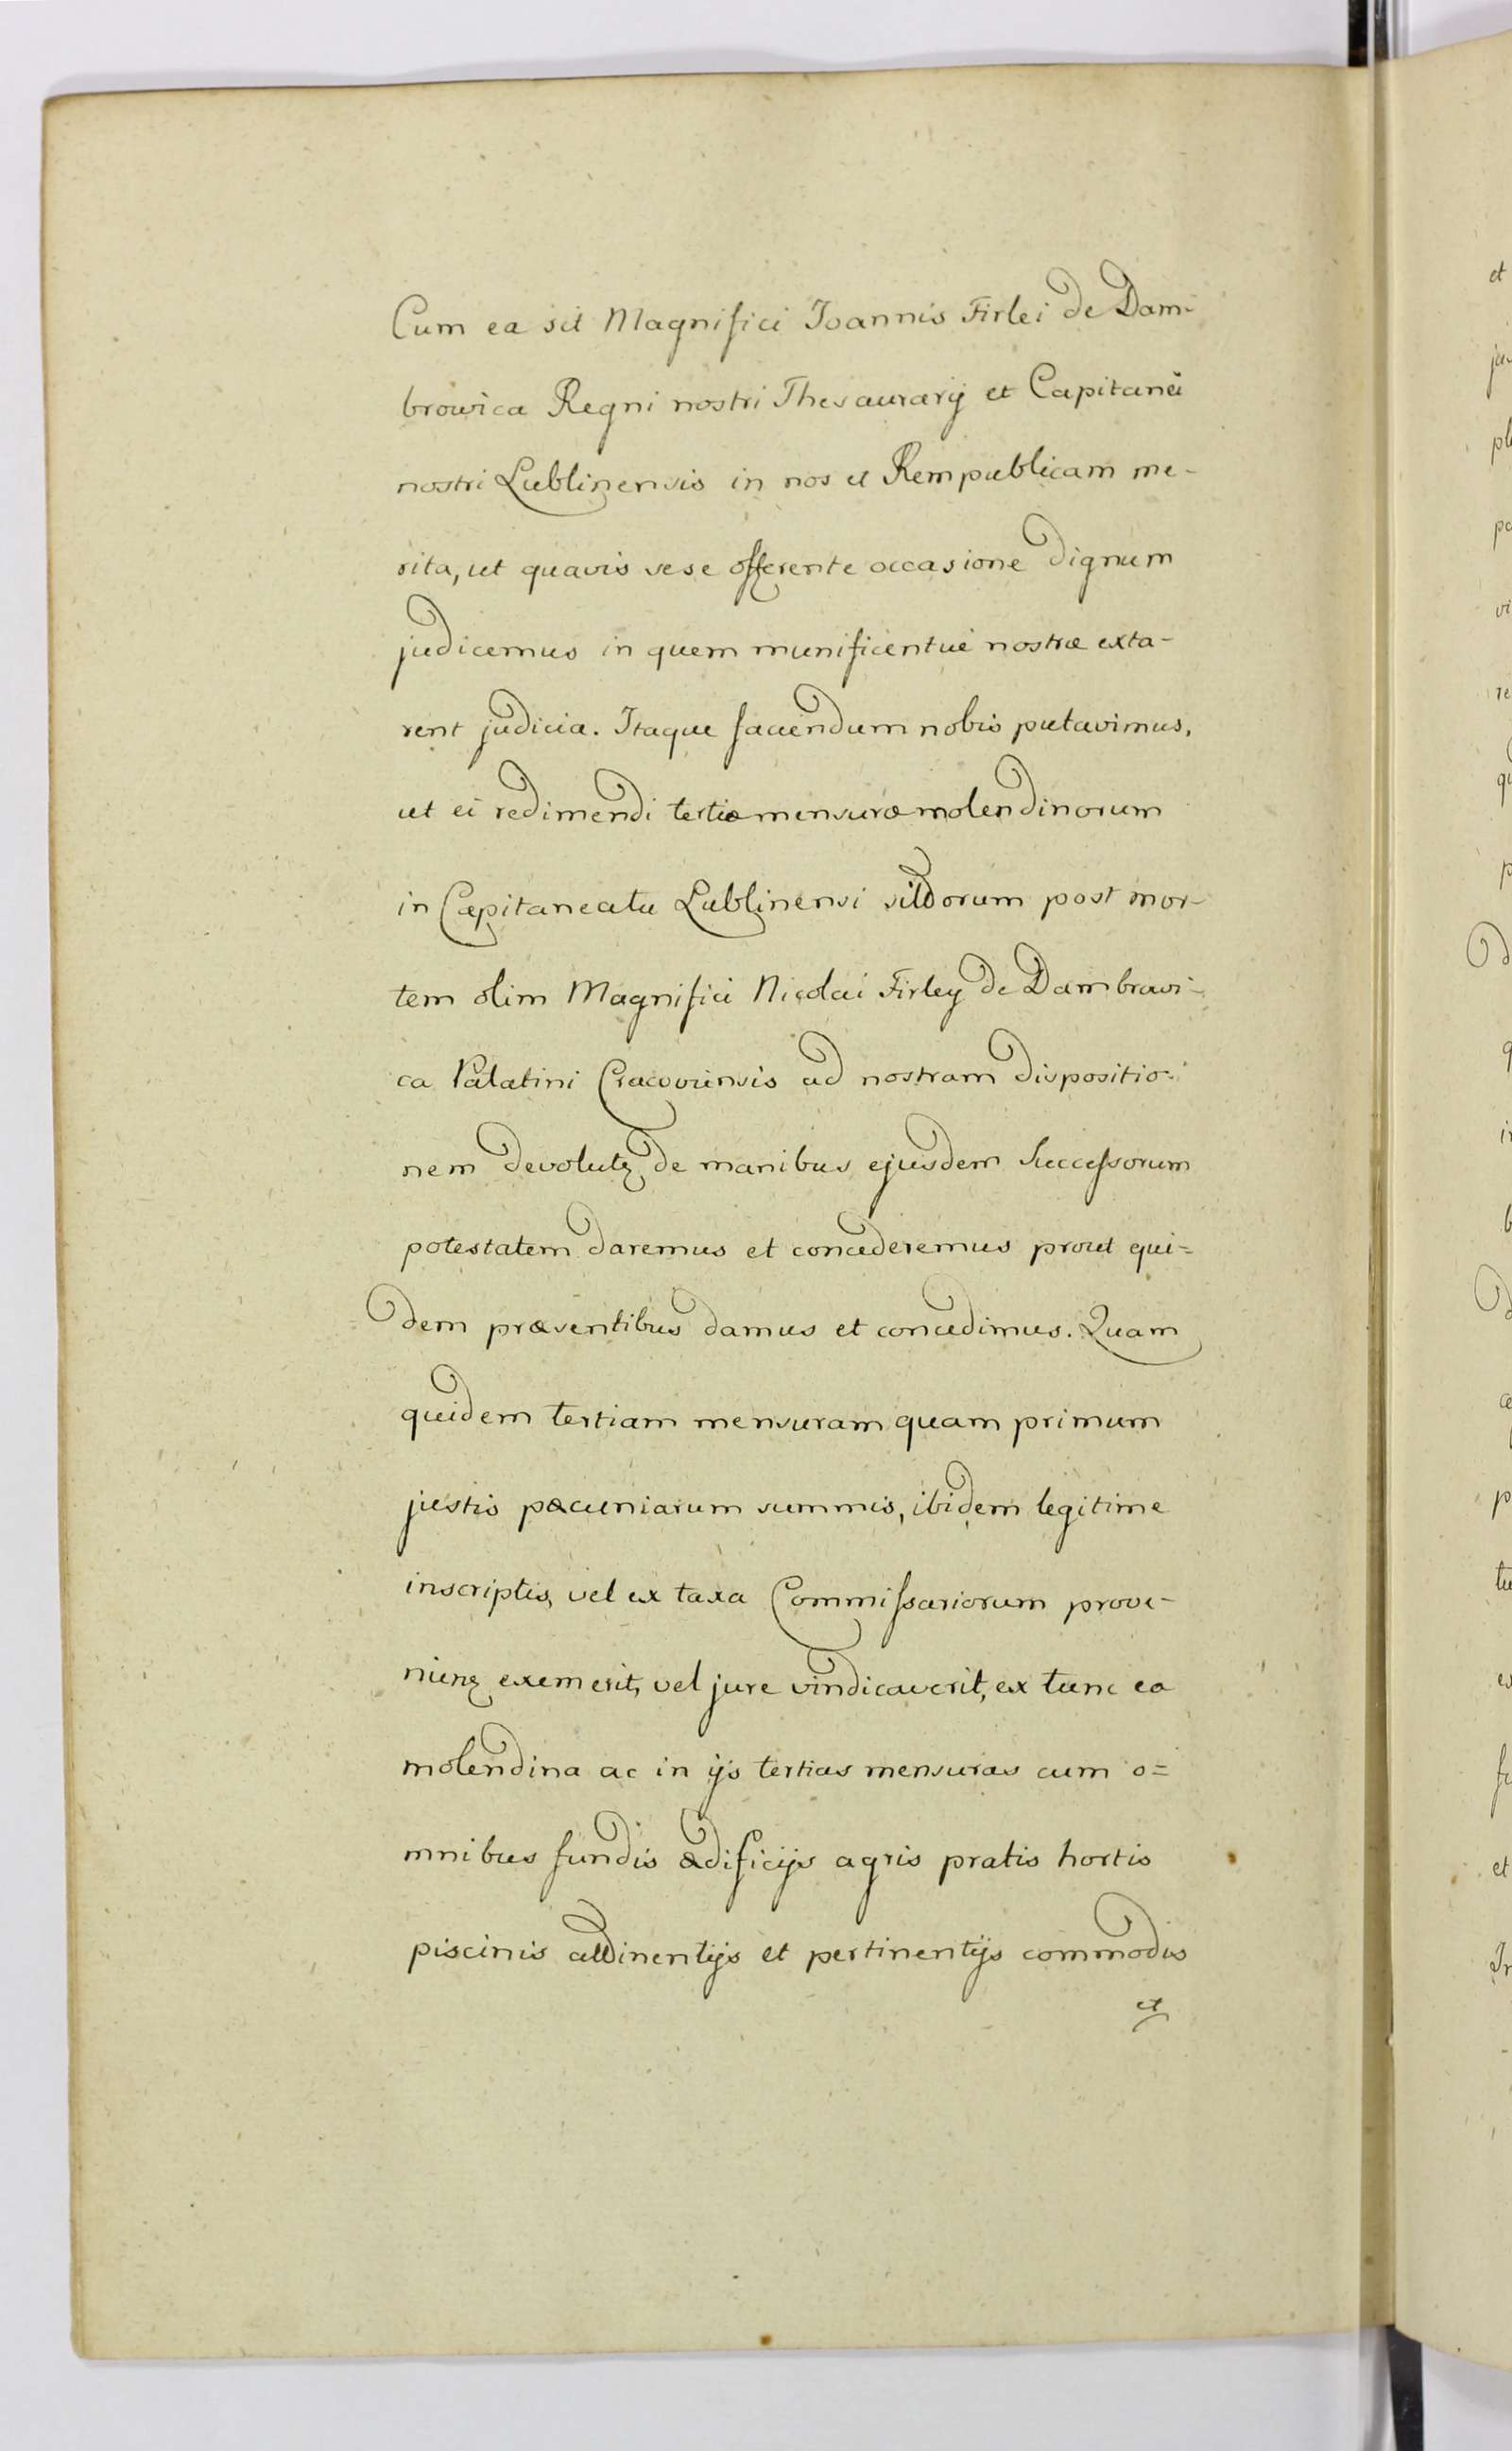 Cum ea sit Magnifici Joannis Firlei de Dam-
browica Regni nostri Thesaurarij et Capitanei
nostri Lublinensis in nos et Rempublicam me-
rita, ut quavis sese offerente occasione dignum
judicemus in quem munificentiæ nostræ exta-
rent judicia. Itaque faciendum nobis putavimus,
ut ei redimendi tertiæ mensuræ molendinorum
in Capitaneatu Lublinensi sitorum post mor-
tem olim Magnifici Nicolai Firley de Dambrowi-
ca Palatini Cracoviensis ad nostram dispositio-
nem devolutę de manibus ejusdem Successorum
potestatem daremus et concederemus prout qui=
dem præsentibus damus et concedimus. Quam
quidem tertiam mensuram quam primum
justis pæcuniarum summis, ibidem legitime
inscriptis, vel ex taxa Commissariorum prove-
nienę exemerit, vel jure vindicaverit, ex tunc ea
molendina ac in ijs tertias mensuras cum o=
mnibus fundis ædificijs agris pratis hortis
piscinis attinentijs et pertinentijs commodis
et